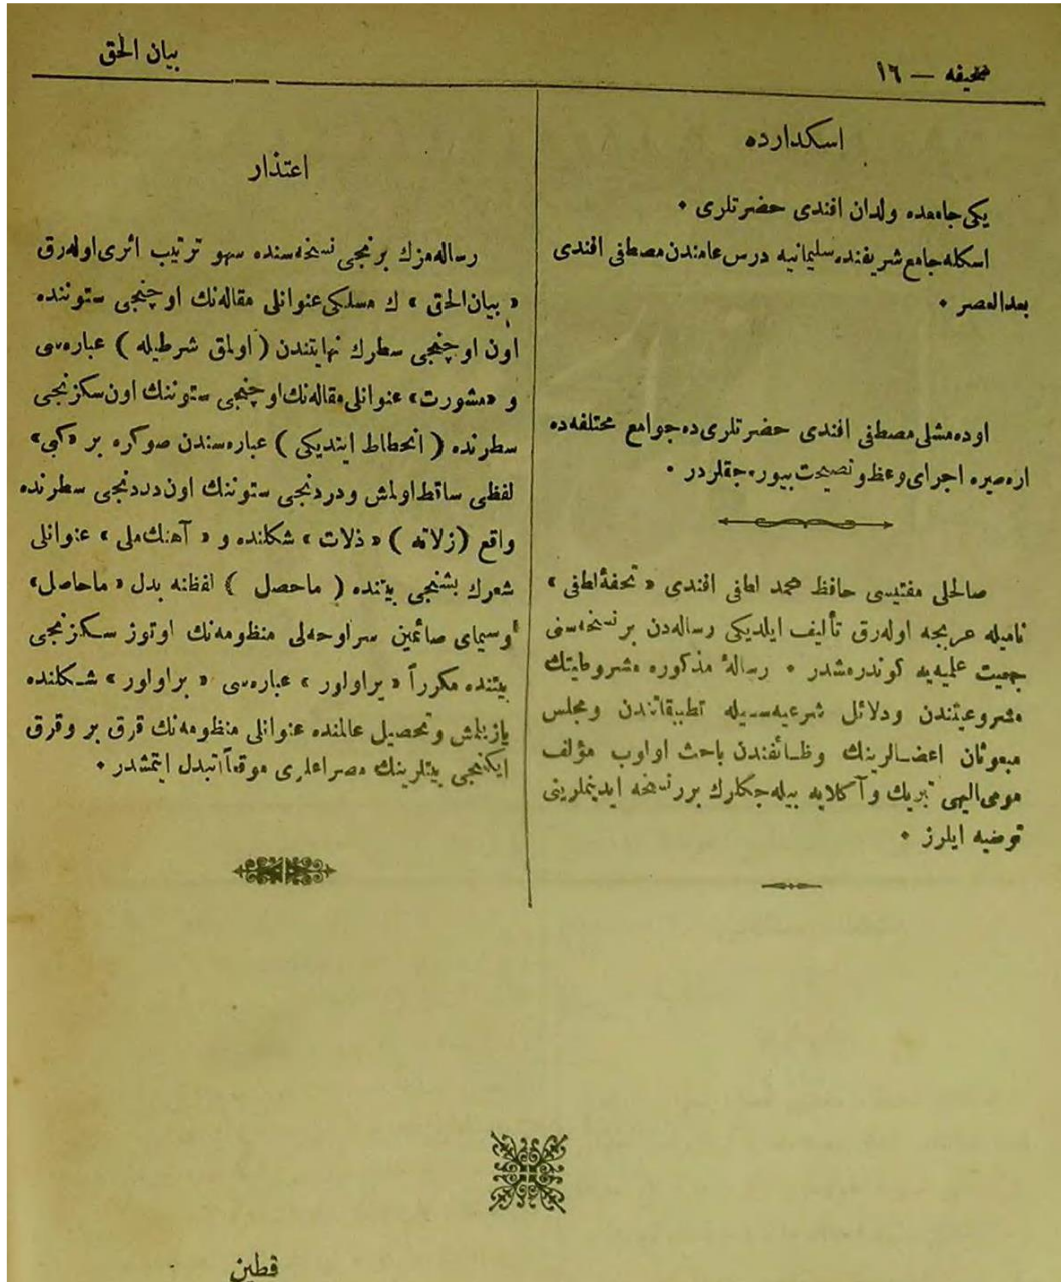 صحیفه — ١٦
بیان الحق
اسكدارده
یكی جامعده ولدان افندی حضرتلری .
اسكله جامع شریفنده سلیمانیه درس عامندن مصطفی افندی
بعدالعصر .
اوده‌مشلی مصطفی افندی حضرتلری ده جوامع مختلفه ده
اره‌صیره اجرای وعظ و نصیحت بیوره‌جقلردر .
صالحلی مفتیسی حافظ محمد لطفی افندی « تحفهٔ لطفی »
نامیله عربجه اوله‌رق تألیف ایلدیكی رساله‌دن بر نسخه‌سنی
جمعیت علمیه‌یه كوندرمشدر . رسالهٔ مذكوره مشروطیتك
مشروعیتندن ودلائل شرعیه‌سیله تطبیقاتندن ومجلس
مبعوثان اعضالرینك وظائفندن باحث اولوب مؤلف
مومی‌الیهی تبریك و آكلایه بیله‌جكلرك بررنسخه ایدینملرینی
توصیه ایلرز .
اعتذار
رساله‌مزك برنجی نسخه‌سنده سهو ترتیب اثری اوله‌رق
« بیان‌الحق » ك مسلكی عنوانلی مقاله‌نك اوچنجی ستوننده
اون اوچنجی سطرك نهایتندن ( اولمق شرطیله ) عباره‌سی
و «مشورت» عنوانلی مقاله‌نك اوچنجی ستوننك اون سكزنجی
سطرنده ( انحطاط ایتدیكی ) عباره‌سندن صوكره بر «كبی»
لفظی ساقط اولمش ودردنجی ستوننك اون دردنجی سطرنده
واقع (زلاته ) « ذلات » شكلنده و « آهنك ملی » عنوانلی
شعرك بشنجی بیتنده ( ماحصل ) لفظنه بدل « ماحاصل»
وسیمای صائمین سراوحه‌لی منظومه‌نك اوتوز سكزنجی
بیتنده مكرراً « براولور » عباره‌سی « براولور » شكلنده
یازیلمش و تحصیل عالمنده عنوانلی منظومه‌نك قرق بر وقرق
ایكنجی بیتلرینك مصراعلری موقعاً تبدل ایتمشدر .
قطین